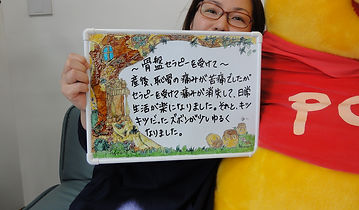 ～骨盤セラピーを受けて～
産後、恥骨の痛みが苦痛でしたが
セラピーを受けて痛みが消失して、日常
生活が楽になりました。それと、キツ
キツだったズボンが少しゆるく
なりました。
PO